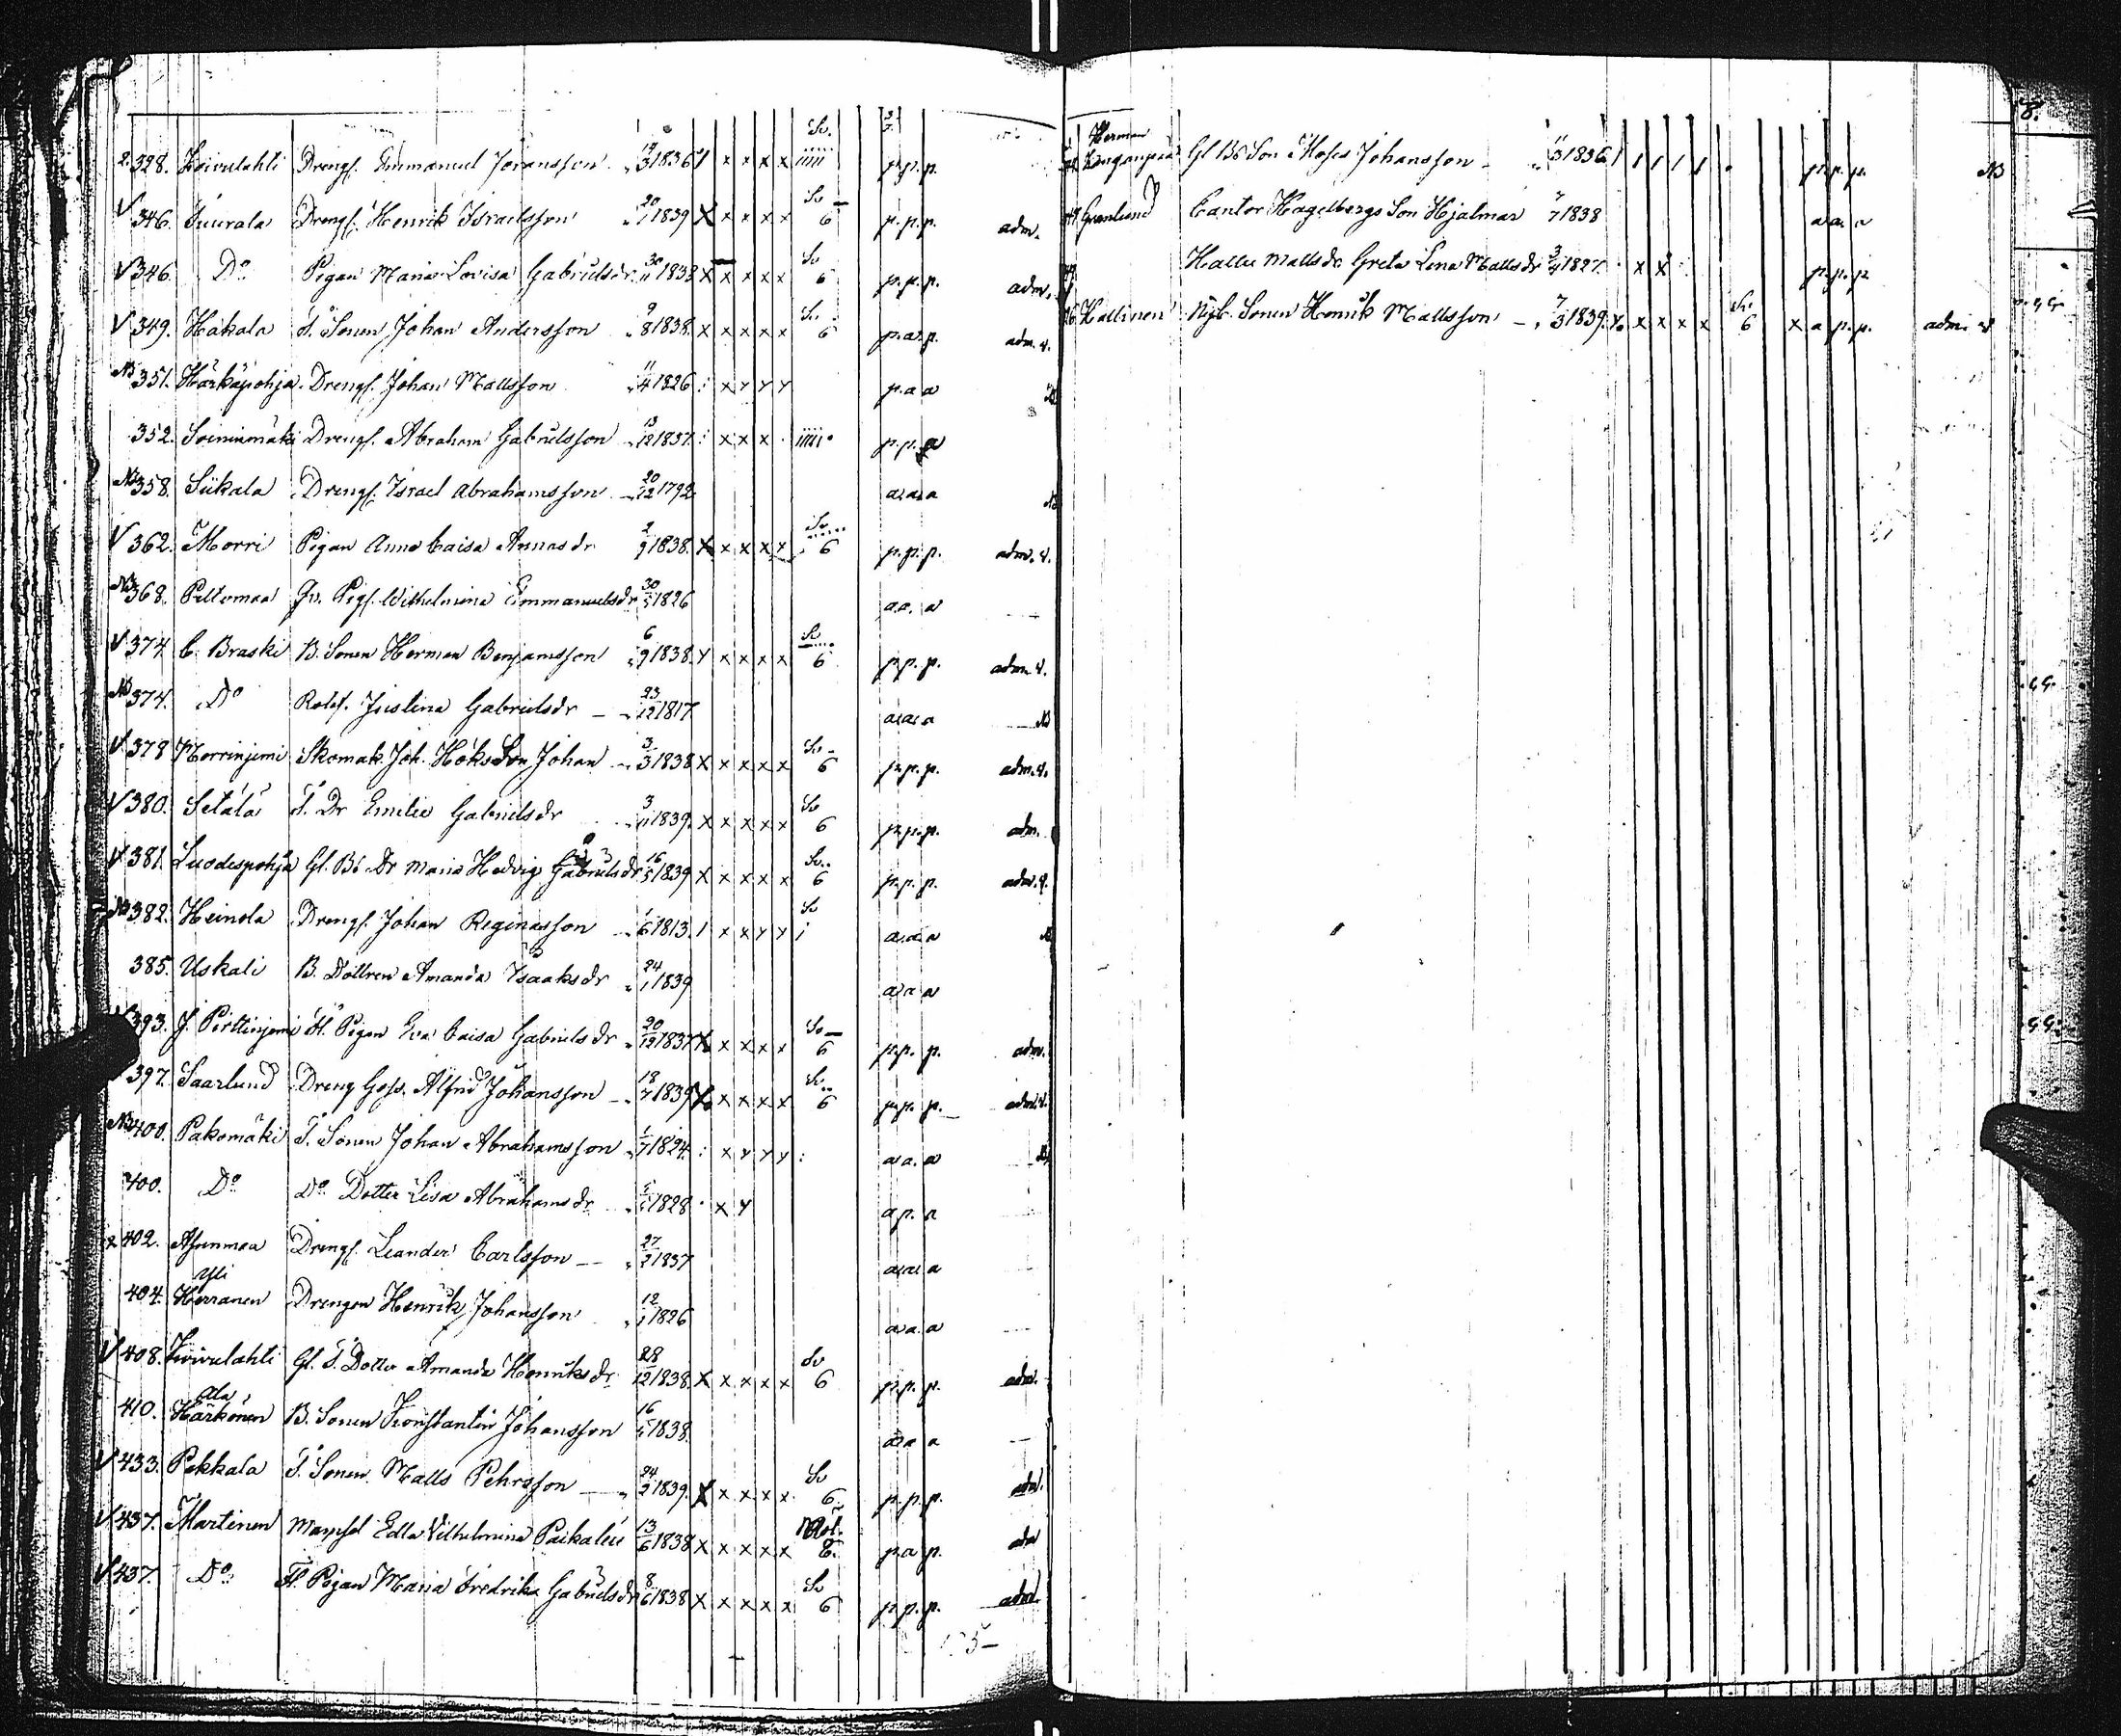 2. 328. Koivulahti Drengs. Emmanuel Joransson 1836 / x x x x iiiii p.p.p.
V 346. Tuurala Drengs. Henrik Israelsson 20/1 1839 X x x x x Sv 6 p.p.p. adm.
V 346. Do Pigan Maria Lovisa Gabrielsdr 30/11 1838 x x x x x Sv 6 p.p.p. adm.
V 349. Hakala T. Sonen Johan Andersson 9/8 1838. x x x x x Sv. 6 p.a.p. adm. v.
NB 351. Härkäpohja Drengs. Johan Mattsson 11/4 1826 : x y y y p.a a
352. Soininmäki Drengs. Abraham Gabrielsson 13/12 1837. : x x x iiiii p.p. a
NB 358. Siikala Drengs. Israel Abrahamsson 20/12 1792 a.a.a NB
V 362. Morri Pigan Anna Caisa Annasdr 2/9 1838. X x x x x Sv 6 p.p.p. adm. v.
NB 368. Peltomaa Pigs. Wilhelmina Emmanuelsdr 30/5 1826 a.a. a
V 374 C. Braski B. Sonen Herman Benjamsson 6/9 1838. x x x x 6 p.p. p. adm. v.
NB 374. Do Justina Gabrielsdr 23/12 1817 a.a. a NB
V 378 Morrinjemi Skomak. Joh. Höks Son Johan 3/3 1838 X x x x x Sv 6 p.p.p. adm. v.
V 380. Setälä T. Dr Emilie Gabrielsdr 3/11 1839. X x x x x Sv 6 p.p.p. adm.
V 381. Luodespohja Gl. Bs Dr Maria Hedvig Gabrielsdr 16/5 1839 X x x x x Sv. 6 p.p.p. adm. v.
NB 382. Heinola Drengs. Johan Reginasson 1/6 1813. / x x y y i Sv a.a.a
385. Uskali B. Dottren Amanda Isaaksdr 24/1 1839 a a a
393. J. Pirttinjemi Pigan Eva Caisa Gabrielsdr 20/12 1837 X x x x x Sv 6 p.p. p. adm.
397. Saarlund Dreng Goss. Alfrid Johansson 18/7 1839 X x x x x Sv. 6 p.p. p. adm. v.
NB 400. Pakomäki T. Sonen Johan Abrahamsson 1/7 1824. : x y y y : a a. a
400. Do Do Dotter Lisa Abrahamsdr 1828 x y a p. a
402. Asunmaa Drengs. Leander Carlsson 27/2 1837 a.a. a
Yli
404. Herranen Drengen Henrik Johansson 12/1 1826 a.a. a
V 408. Koivulahti Gl. T. Dotter Amanda Henriksdr 28/12 1838. X x x x x Sv 6 p.p. p. adm.
Ala
410. Härkönen B. Sonen Konstantin Johansson 16/5 1838. a a a
V 433. Pekkala T. Sonen Matts Pehrsson 24/2 1839. X x x x x Sv 6. p.p.p. adm.
V 437. Martinen Mamsel Edla Vilhelmina 13/6 1838 x x x x x 6. p.a p. adm
V 437. Do Pigan Maria Fredrika Gabrielsdr 8/6 1838 x x x x x Sv 6 p.p.p. adm.
8.
Herman
Kanganperä Gl Bs Son Moses Johansson 1836 / / / / / p.p. p. NB
Granlund Cantor Hagelbergs Son Hjalmar 7/7 1838 a a. a
Matts dr Greta Lena Mattsdr 3/4 1827. x x p.p.p
Kallinen Nyb. Sonen Henrik Mattsson 7/3 1839. x x x x Sv. 6 x a p.p. adm. v